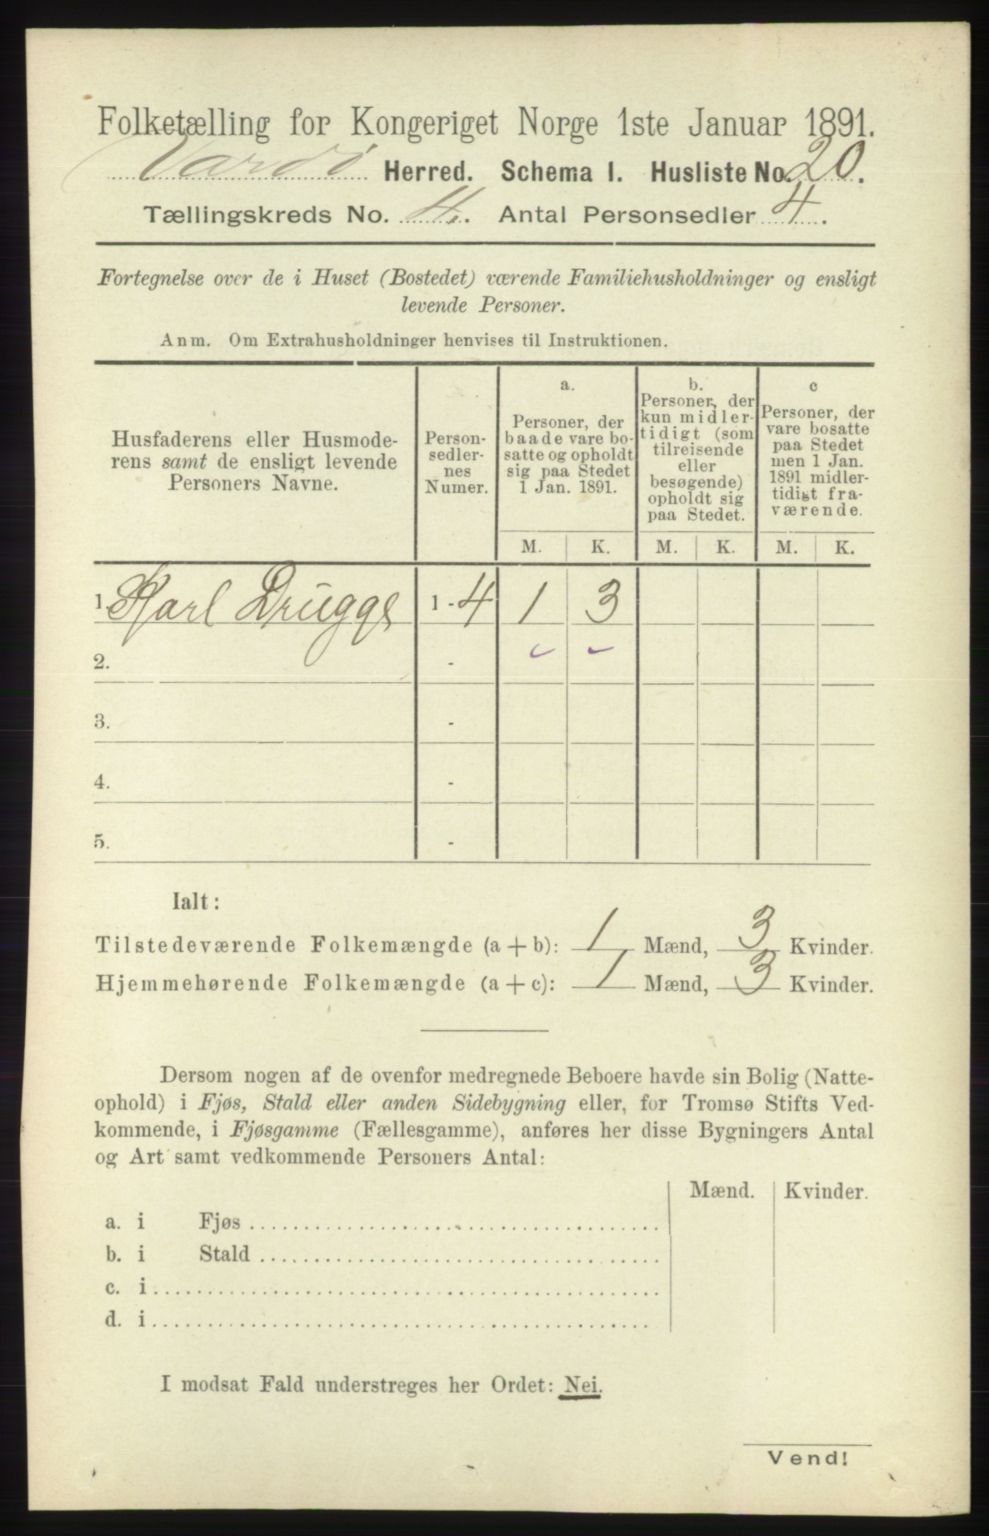 Folketælling for Kongeriget Norge 1ste Januar 1891.
Vardø Herred. Schema I. Husliste No. 20.
Tællingskreds No. 4. Antal Personsedler 4.
Fortegnelse over de i Huset (Bostedet) værende Familiehusholdninger og ensligt
levende Personer.
Anm. Om Extrahusholdninger henvises til Instruktionen.
Husfaderens eller Husmode-
rens samt de ensligt levende
Personers Navne.
Person-
sedler-
nes
Numer.
a.
Personer, der
baade vare bo-
satte og opholdt
sig paa Stedet
1 Jan. 1891.
b.
Personer, der
kun midler-
tidigt (som
tilreisende
eller
besøgende)
opholdt sig
paa Stedet.
c
Personer, der
vare bosatte
paa Stedet
men 1 Jan.
1891 midler-
tidigt fra-
værende.
M. K. M. K. M. K.
1. Karl Drugge 1 - 4 1 3
2. -
3. -
4. -
5. -
Ialt:
Tilstedeværende Folkemængde (a + b): 1 Mænd, 3 Kvinder.
Hjemmehørende Folkemængde (a + c): 1 Mænd, 3 Kvinder.
Dersom nogen af de ovenfor medregnede Beboere havde sin Bolig (Natte-
ophold) i Fjøs, Stald eller anden Sidebygning eller, for Tromsø Stifts Ved-
kommende, i Fjøsgamme (Fællesgamme), anføres her disse Bygningers Antal
og Art samt vedkommende Personers Antal:
Mænd. Kvinder.
a. i Fjøs
b. i Stald
c. i
d. i
I modsat Fald understreges her Ordet: Nei.
Vend!